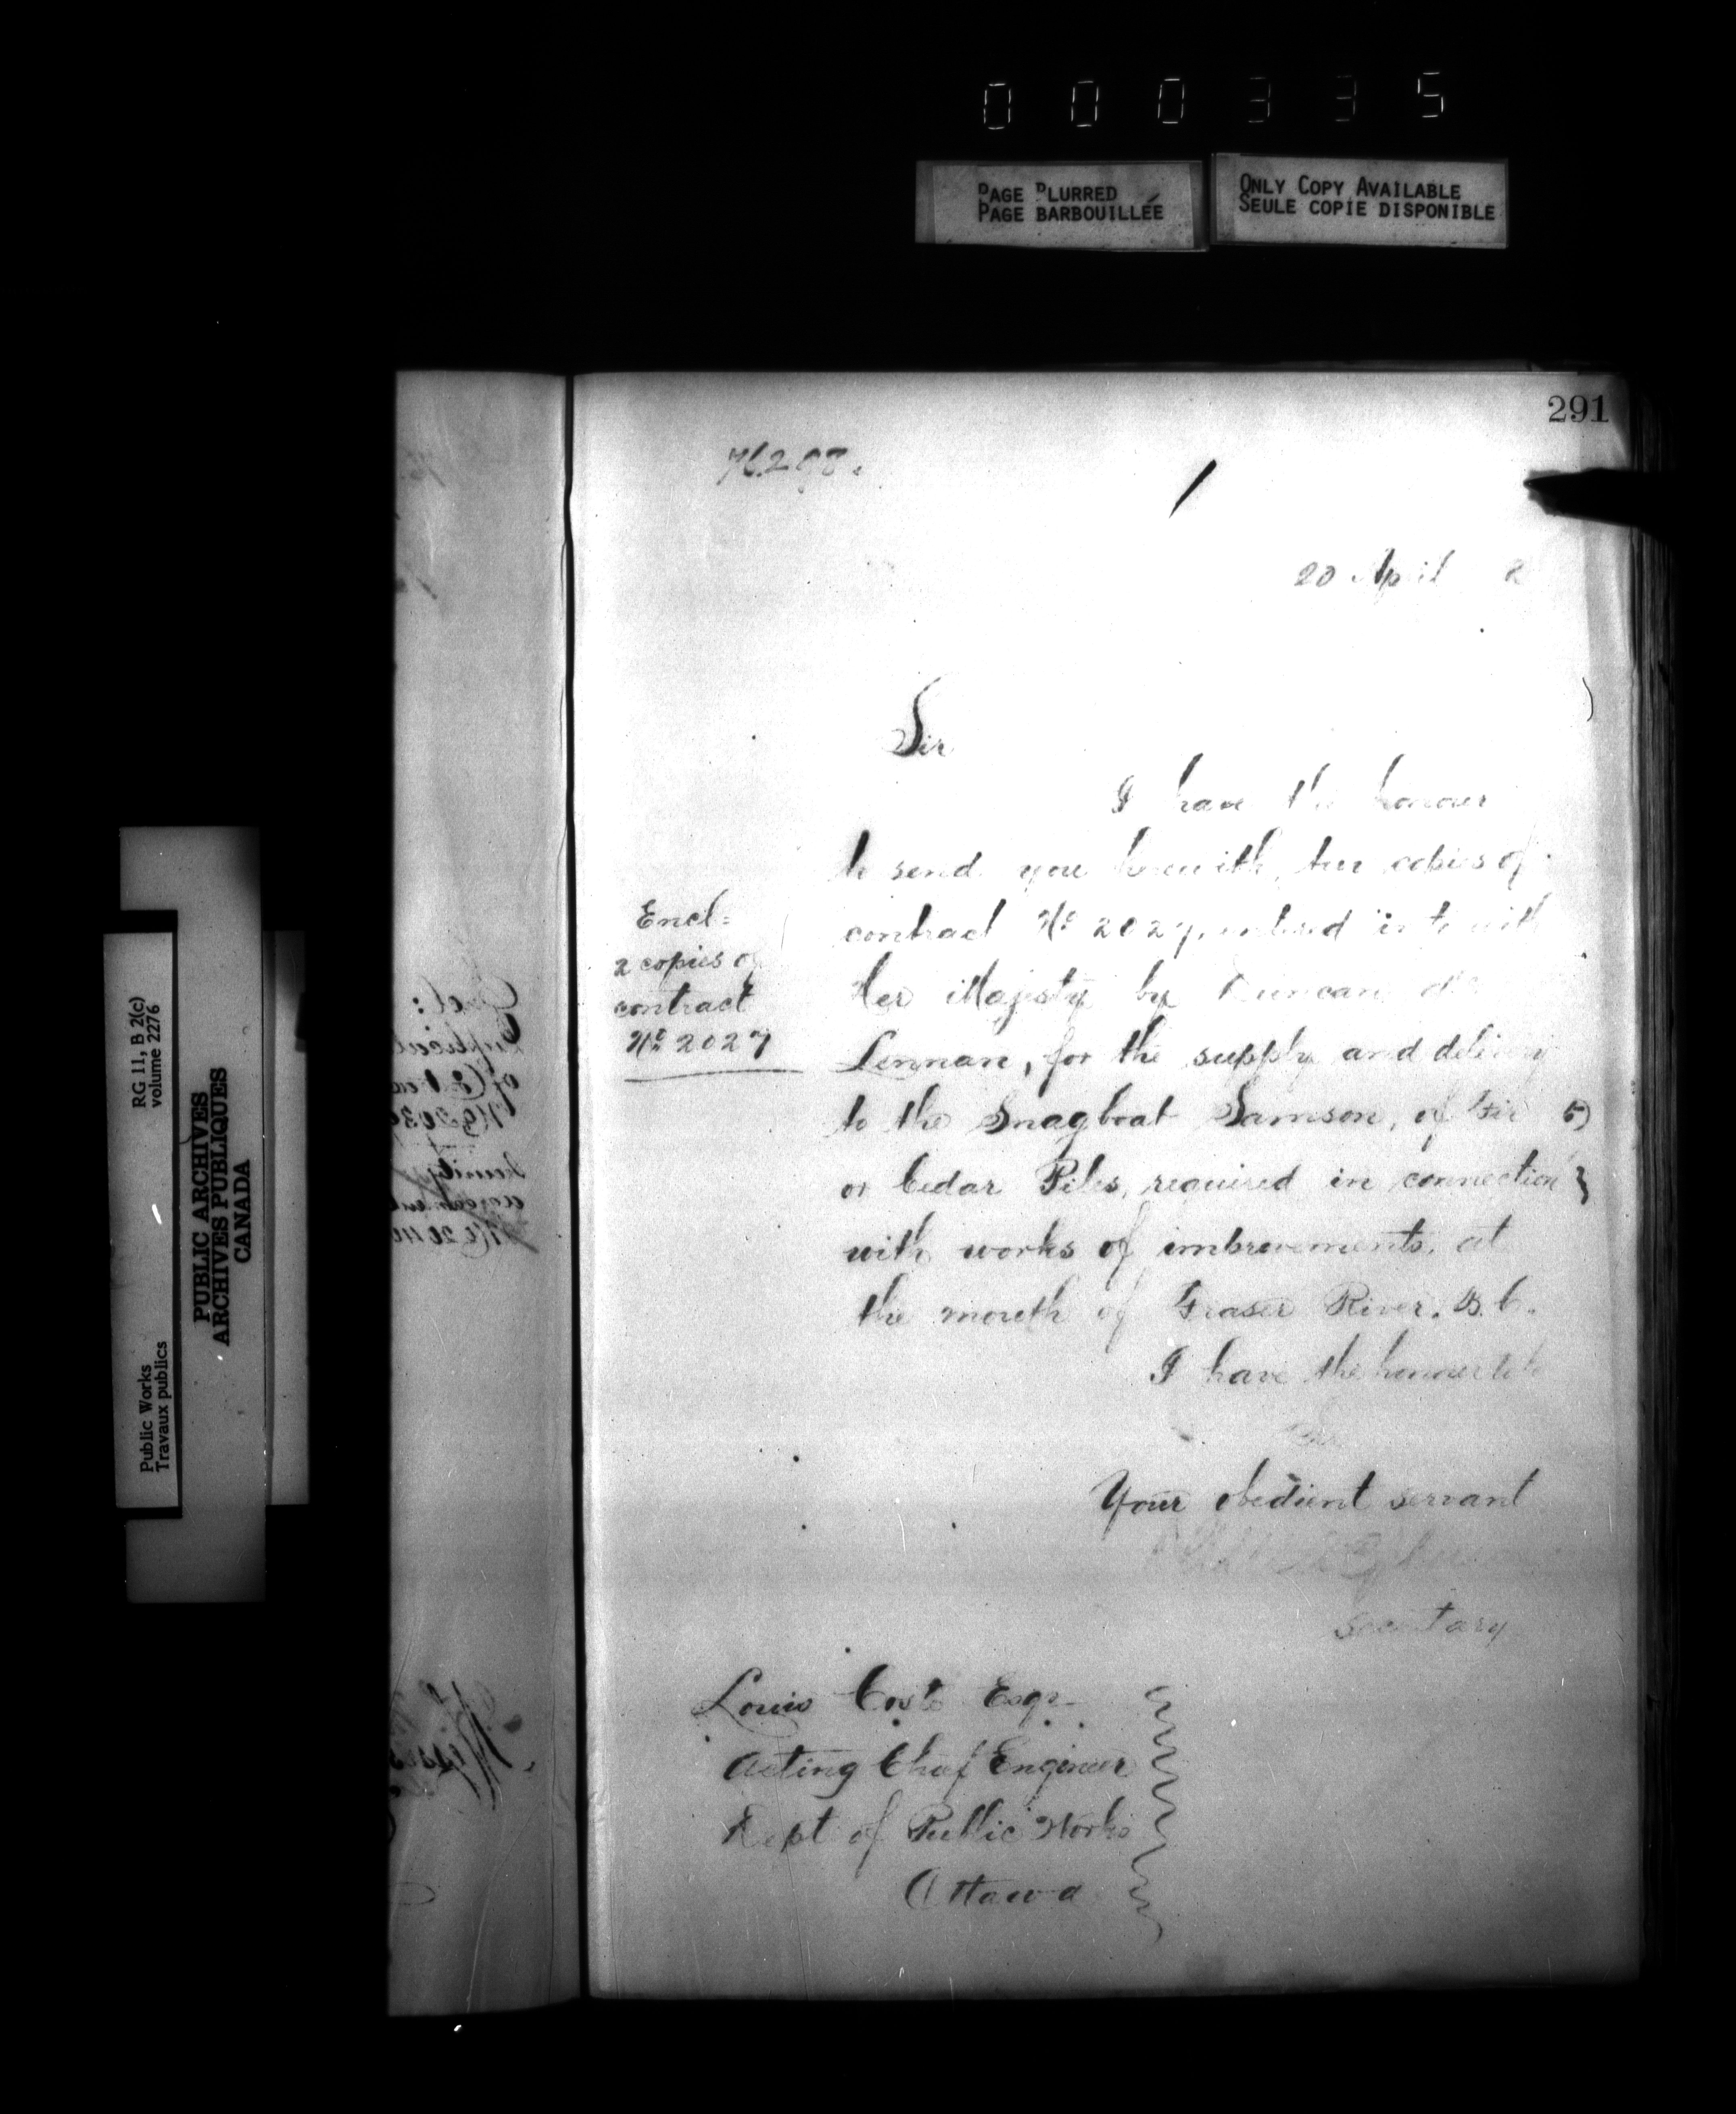 000335
PAGE BLURRED
PAGE BARBOUILLÉE
ONLY COPY AVAILABLE
SEULE COPIE DISPONIBLE
291
20 April 2
Sir
I have the honour
to send you herewith, two copies of
contract No 2027, entered into with
Her Majesty by Duncan Mc
Lennan, for the supply and delivery
to the Snagboat Samson, of Fir
or Cedar Piles, required in connection
with works of improvements, at
the mouth of Fraser River. B.C.
I have the honour to be
Sir
Your obedient servant
Secretary
Encl=
2 copies of
contract
No 2027
Louis Coste Esqr
Acting Chief Engineer
Dept of Public Works
Ottawa
RG 11, B 2(c)
volume 2276
PUBLIC ARCHIVES
ARCHIVES PUBLIQUES
CANADA
Public Works
Travaux publics